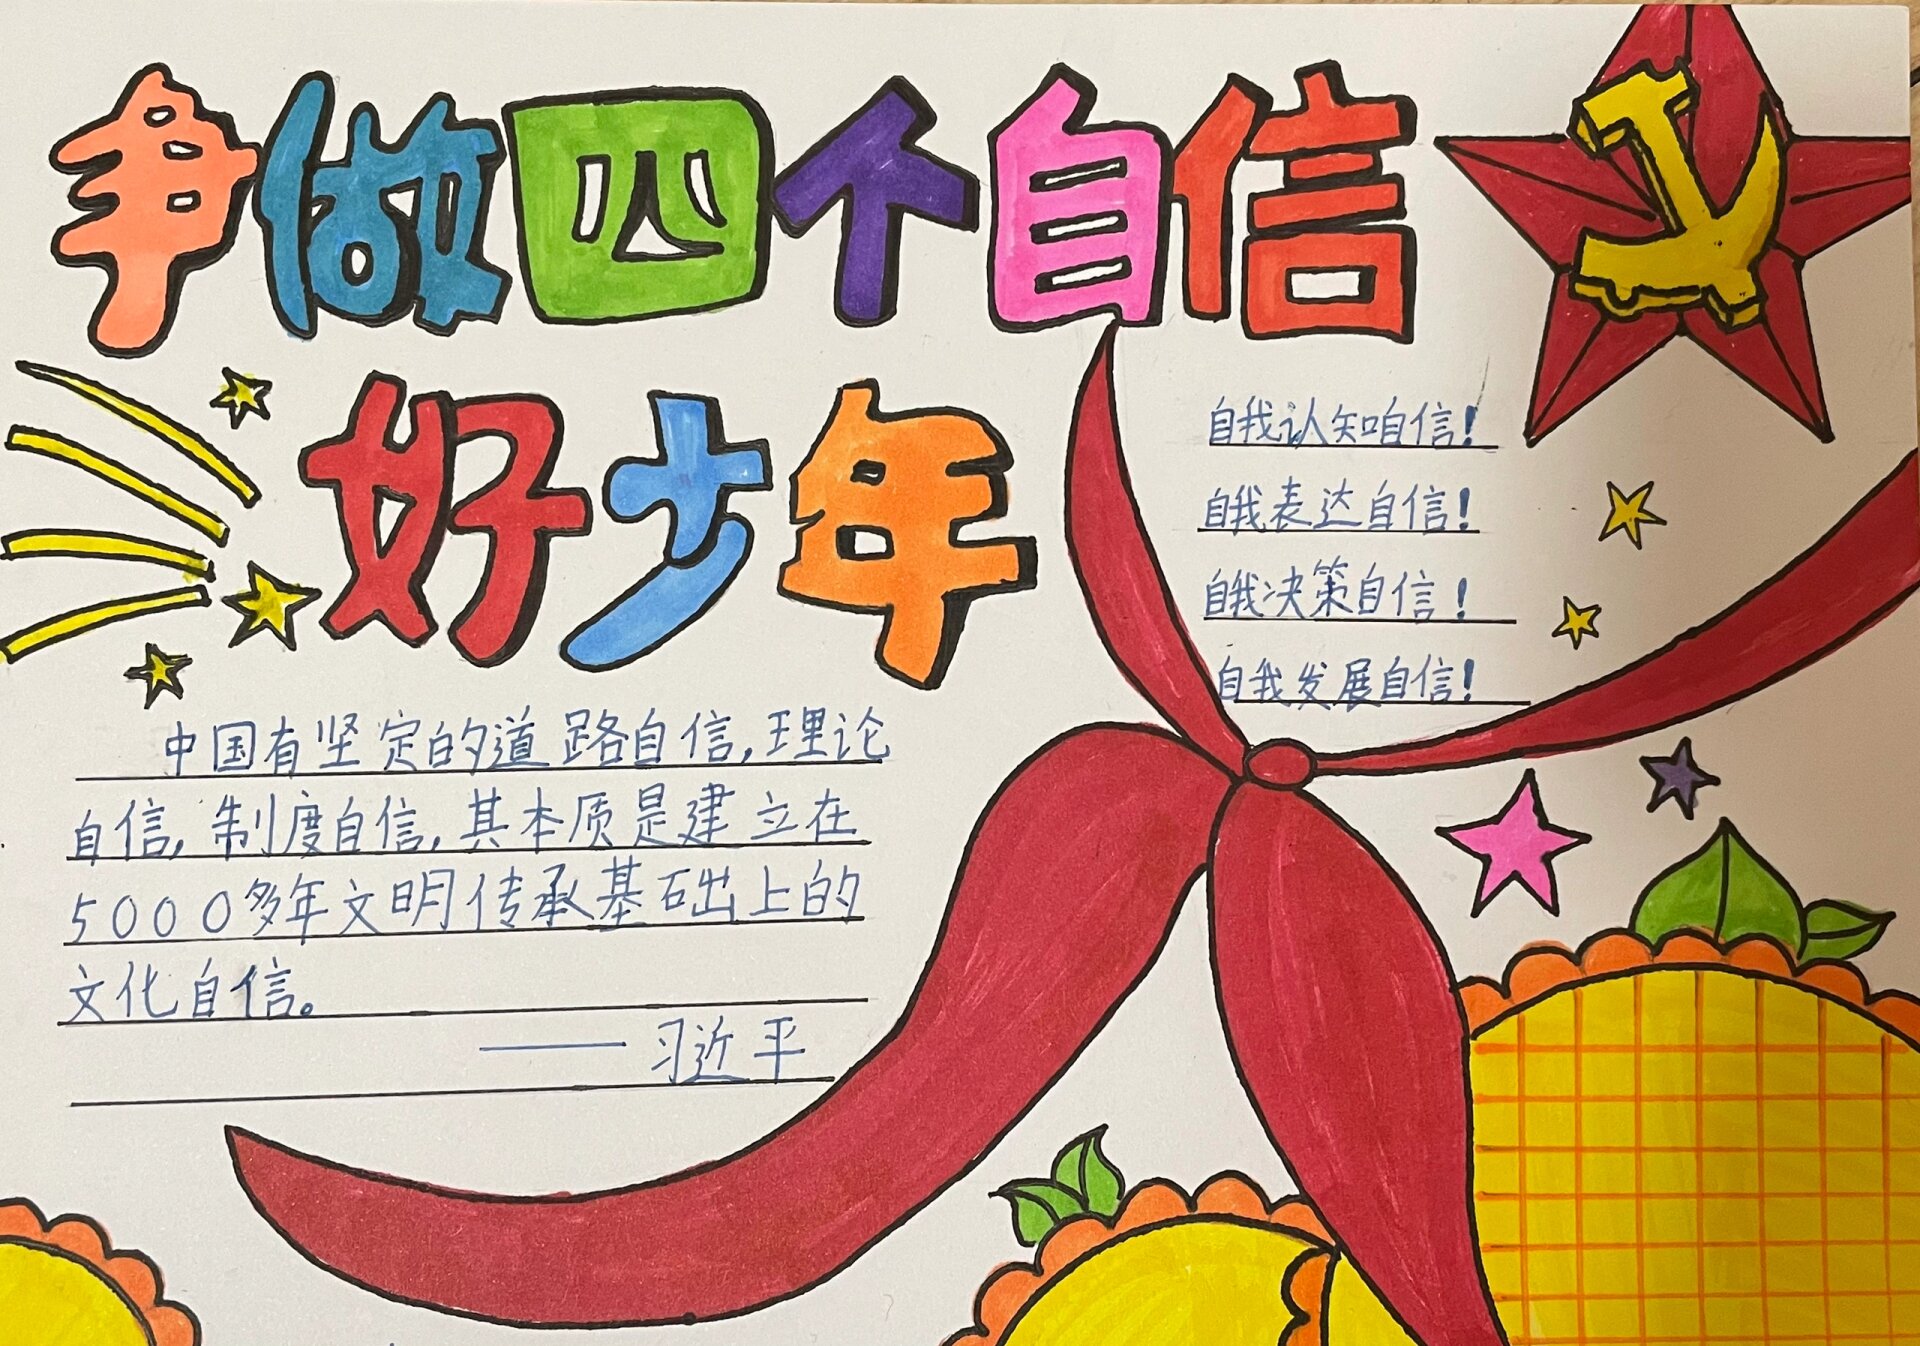 争做四个自信
好少年
自我认知自信!
自我表达自信!
自我决策自信!
自我发展自信!
中国有坚定的道路自信,理论
自信,制度自信,其本质是建立在
5000多年文明传承基础上的
文化自信。
——习近平